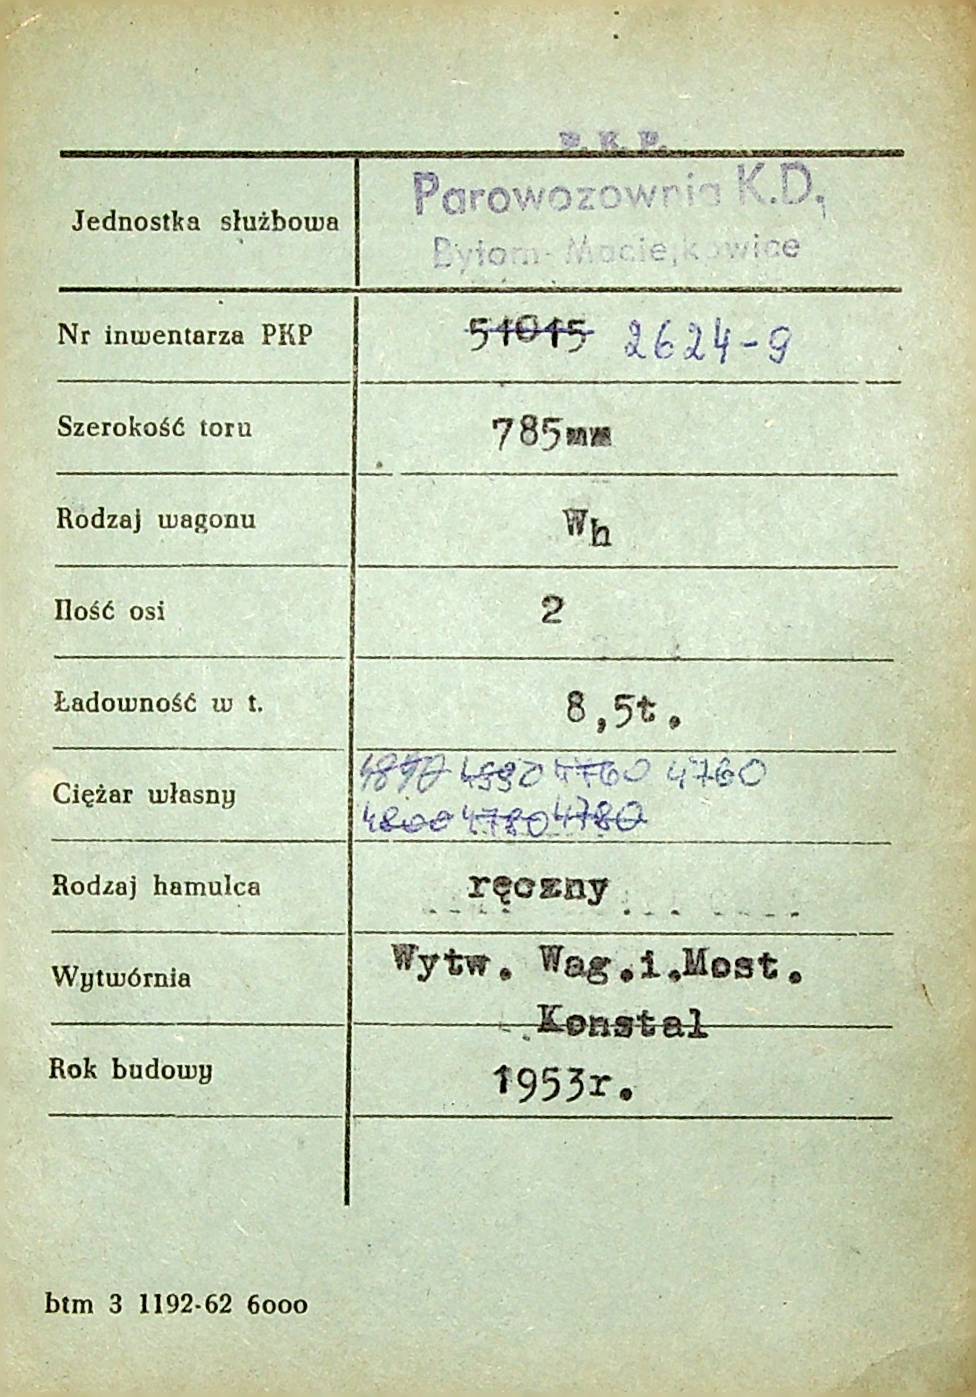 P. K. P.
Parowozownia K.D.
Jednostka służbowa
Bytom-Maciejkowice
Nr inwentarza PKP 51015 2624-9
Szerokość toru 785mm
Rodzaj wagonu Wh
Ilość osi 2
Ładowność w t. 8,5t.
4990 4760 4760
Ciężar własny
4800 4780 4780
Rodzaj hamulca ręczny
Wytwórnia Wytw. Wag.i.Most.
Konstal
Rok budowy 1953r.
btm 3 1192-62 6ooo